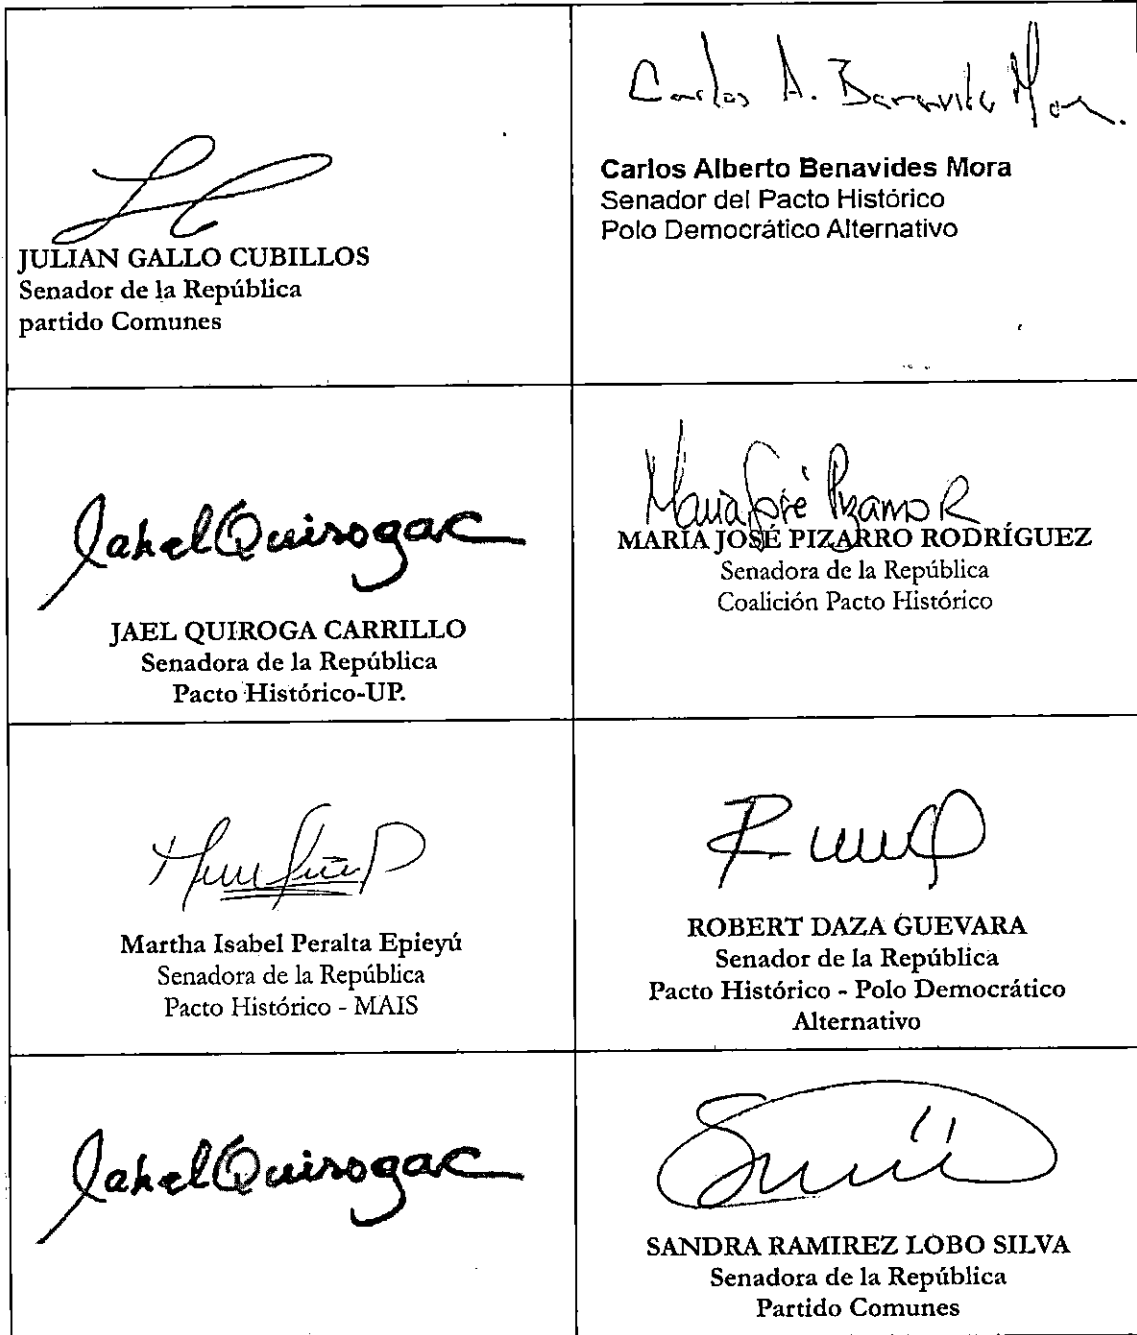 Carlos A. Benavides Mora.
JULIAN GALLO CUBILLOS
Senador de la República
partido Comunes
Carlos Alberto Benavides Mora
Senador del Pacto Histórico
Polo Democrático Alternativo
Jahel Quiroga C
JAEL QUIROGA CARRILLO
Senadora de la República
Pacto Histórico-UP.
María José Pizarro R
MARÍA JOSÉ PIZARRO RODRÍGUEZ
Senadora de la República
Coalición Pacto Histórico
Martha Isabel Peralta Epieyú
Senadora de la República
Pacto Histórico - MAIS
ROBERT DAZA GUEVARA
Senador de la República
Pacto Histórico - Polo Democrático
Alternativo
Jahel Quiroga C
SANDRA RAMIREZ LOBO SILVA
Senadora de la República
Partido Comunes